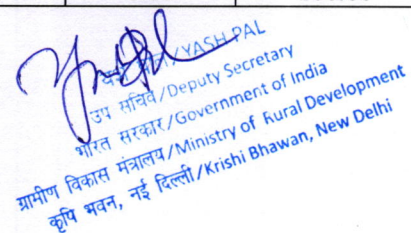 /YASH PAL
उप सचिव/Deputy Secretary
भारत सरकार/Government of India
ग्रामीण विकास मंत्रालय/Ministry of Rural Development
कृषि भवन, नई दिल्ली/Krishi Bhawan, New Delhi